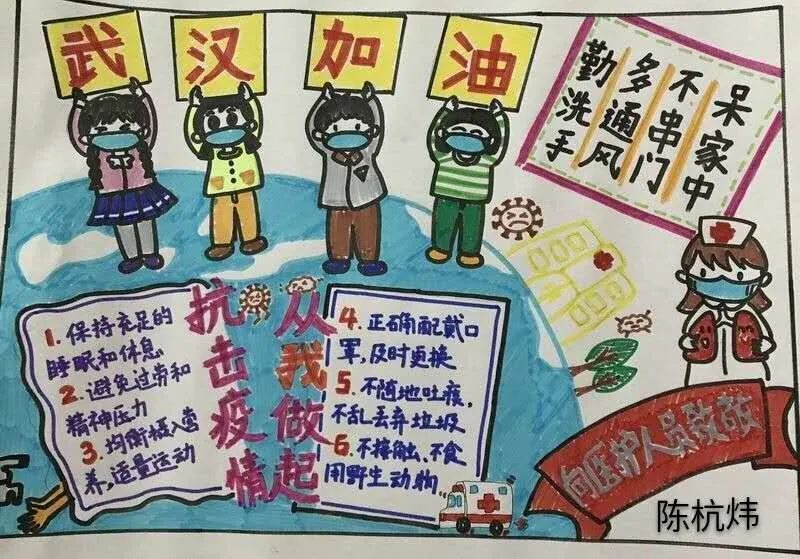 武汉加油
勤洗手
多通风
不串门
呆家中
抗击疫情
从我做起
1. 保持充足的
睡眠和休息
2. 避免过劳和
精神压力
3. 均衡摄入营
养,适量运动
4. 正确配戴口
罩,及时更换
5. 不随地吐痰,
不乱丢弃垃圾
6. 不接触、不食
用野生动物
向医护人员致敬
陈杭炜